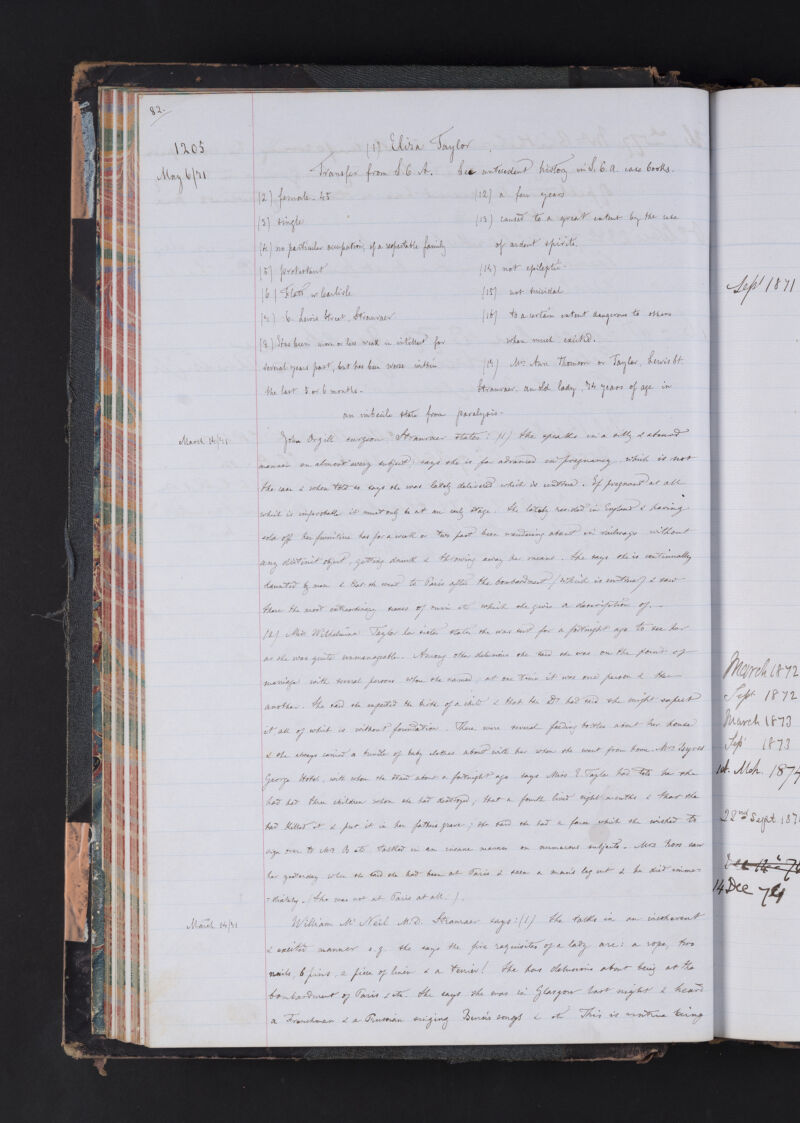 82.
1205
May 6/71
(1) Eliza Taylor
Transfer from S.C.A. See antecedent history in S.C.A. case books.
(2) female. 45
(3) single
(4) no particular occupation, of a respectable family
(5) protestant
(6) Flatt nr Carlisle
(7) 6 Lewis Street, Stranraer
(8) Has been more or less weak in intellect for
several years past, but has been worse within
the last 5 or 6 months.
(12) a few years
(13) caused to a great extent by the use
of ardent spirits.
(14) not epileptic.
(15) not suicidal
(16) to a certain extent dangerous to others
when much excited.
(17) Mrs Ann Thomson or Taylor, Lewis St.
Stranraer. an old lady, 74 years of age in
an imbecile state from paralysis.
March 14/71
John Orgill surgeon Stranraer states: (1) She speaks in a silly & absurd
manner on almost every subject; says she is far advanced in pregnancy which is not
the case & when told so says she was lately delivered which is untrue. If pregnant at all
which is improbable it must only be at an early stage. She lately resided in England & having
sold off her furniture has for a week or two past been wandering about in railways without
any distinct object, getting drunk & throwing away her means. She says she is continually
haunted by men & that she went to Paris after the bombardment (which is untrue) & saw
there the most extraordinary scenes of ruin &c which she gives a description of.
(2) Miss Wilhelmina Taylor her sister states she was sent for a fortnight ago to see her
as she was quite unmanageable. Among other delusions she said she was on the point of
marriage with several persons whom she named, at one time it was one person & then
another. She said she expected the birth of a child & that the Dr. had said she might expect
it all of which is without foundation. There were several feeding bottles about her house
& she always carried a bundle of baby clothes about with her when she went from home. Mrs
George Hotel, with whom she stayed about a fortnight ago says Miss E. Taylor had told her she
had had three children whom she had destroyed; that a fourth lived eight months & that she
had killed it & put it in her fathers grave; she said she had a farm which she wished to
sign over to Mrs talked in an insane manner on numerous subjects. Mrs Ross saw
her yesterday when she said she had been at Paris & seen a man's leg cut & he died imme-
-diately. (She was not at Paris at all.)
March 14/71
William Mc Neil M.D. Stranraer says: (1) She talks in an incoherent
& excited manner e.g. she says the five requisites of a lady are: a rope, two
nails, 6 pins, a piece of linen & a terrier! She has delusions about being at the
bombardment of Paris &c &c. She says she was in Glasgow last night & heard
a Frenchman & a Prussian singing songs & &c This is untrue being
Sept 1871
March 1872
Sept 1872
March 1873
Sept 1873
1st. Mch. 1874
22nd Sept 187
14 Dec 74